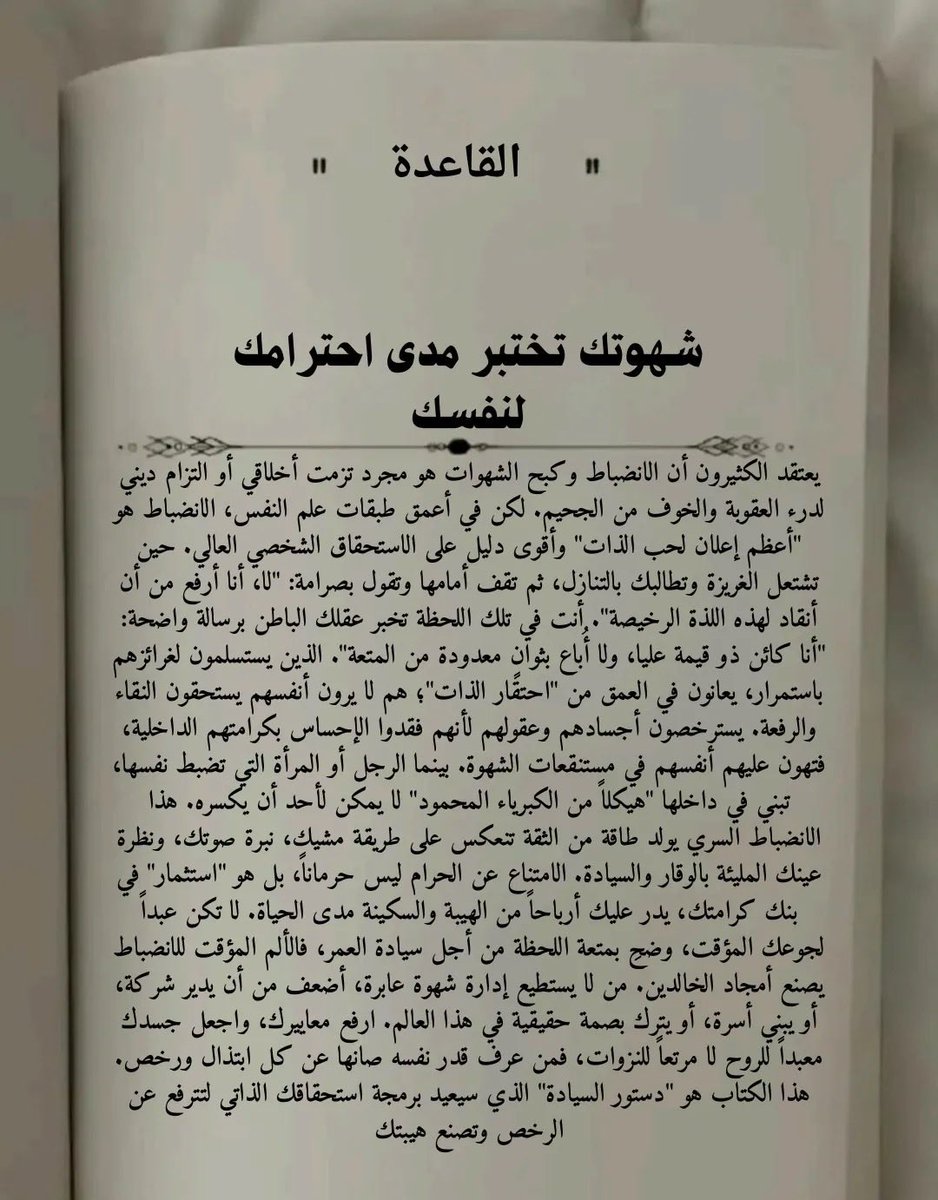 " القاعدة "
شهوتك تختبر مدى احترامك
لنفسك
يعتقد الكثيرون أن الانضباط وكبح الشهوات هو مجرد تزمت أخلاقي أو التزام ديني
لدرء العقوبة والخوف من الجحيم. لكن في أعمق طبقات علم النفس، الانضباط هو
"أعظم إعلان لحب الذات" وأقوى دليل على الاستحقاق الشخصي العالي. حين
تشتعل الغريزة وتطالبك بالتنازل، ثم تقف أمامها وتقول بصرامة: "لا، أنا أرفع من أن
أنقاد لهذه اللذة الرخيصة". أنت في تلك اللحظة تخبر عقلك الباطن برسالة واضحة:
"أنا كائن ذو قيمة عليا، ولا أُباع بثوانٍ معدودة من المتعة". الذين يستسلمون لغرائزهم
باستمرار، يعانون في العمق من "احتقار الذات"؛ هم لا يرون أنفسهم يستحقون النقاء
والرفعة. يسترخصون أجسادهم وعقولهم لأنهم فقدوا الإحساس بكرامتهم الداخلية،
فتهون عليهم أنفسهم في مستنقعات الشهوة. بينما الرجل أو المرأة التي تضبط نفسها،
تبني في داخلها "هيكلاً من الكبرياء المحمود" لا يمكن لأحد أن يكسره. هذا
الانضباط السري يولد طاقة من الثقة تنعكس على طريقة مشيك، نبرة صوتك، ونظرة
عينك المليئة بالوقار والسيادة. الامتناع عن الحرام ليس حرماناً، بل هو "استثمار" في
بنك كرامتك، يدر عليك أرباحاً من الهيبة والسكينة مدى الحياة. لا تكن عبداً
لجوعك المؤقت، وضحِ بمتعة اللحظة من أجل سيادة العمر، فالألم المؤقت للانضباط
يصنع أمجاد الخالدين. من لا يستطيع إدارة شهوة عابرة، أضعف من أن يدير شركة،
أو يبني أسرة، أو يترك بصمة حقيقية في هذا العالم. ارفع معاييرك، واجعل جسدك
معبداً للروح لا مرتعاً للنزوات، فمن عرف قدر نفسه صانها عن كل ابتذال ورخص.
هذا الكتاب هو "دستور السيادة" الذي سيعيد برمجة استحقاقك الذاتي لتترفع عن
الرخص وتصنع هيبتك